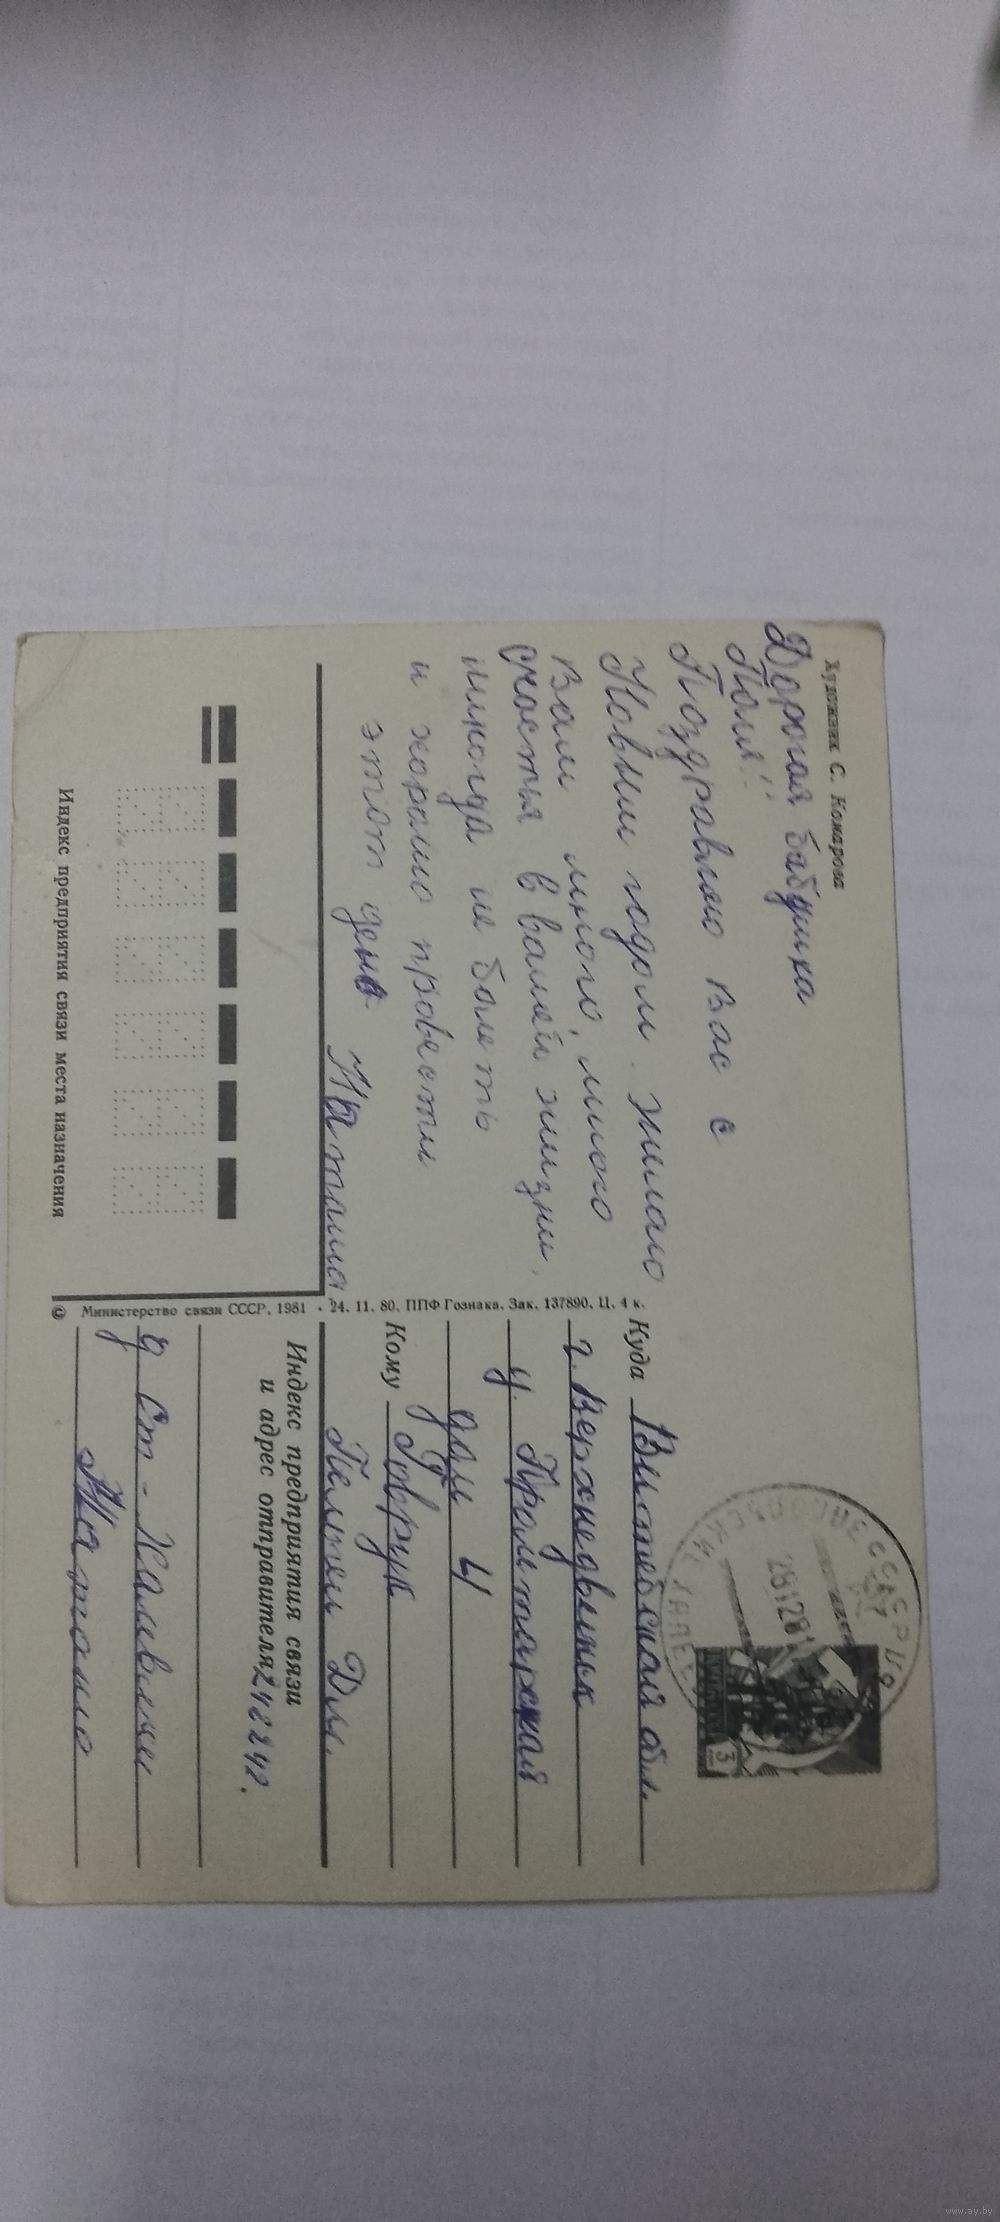 Художник С. Комарова
Дорогая бабушка
Поля!!
Поздравляю Вас с
Новым годом. Желаю
Вам много, много
счастья в вашей жизни,
никогда не болеть
и хорошо провести
этот день.
Наташа
Индекс предприятия связи места назначения
© Министерство связи СССР, 1981 • 24. 11. 80. ППФ Гознака. Зак. 137890. Ц. 4 к.
ПОЧТА СССР
3
Куда Витебская обл.
г. Верхнедвинск
у. Пролетарская
дом 4
Кому
Пелагеи Дм.
Индекс предприятия связи
и адрес отправителя
д
Наташа
www.ay.by